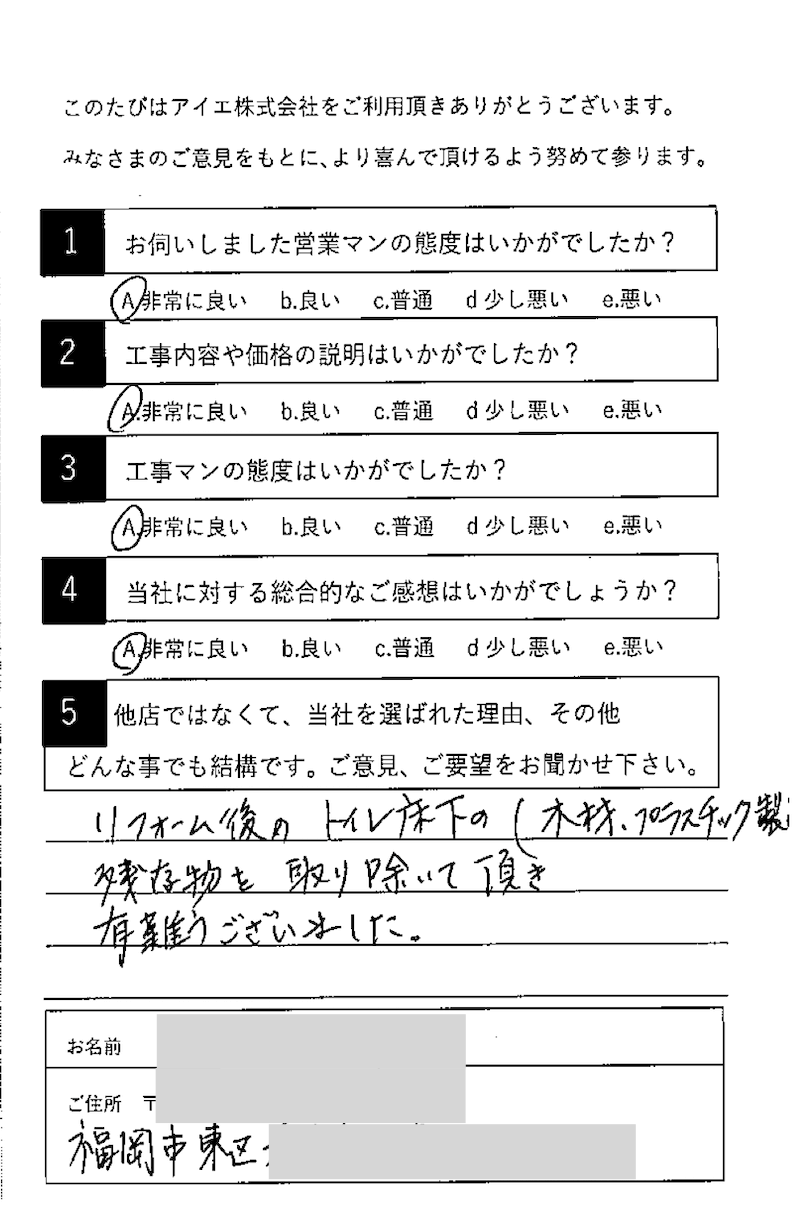 このたびはアイエ株式会社をご利用頂きありがとうございます。
みなさまのご意見をもとに、より喜んで頂けるよう努めて参ります。
1 お伺いしました営業マンの態度はいかがでしたか？
A.非常に良い b.良い c.普通 d 少し悪い e.悪い
2 工事内容や価格の説明はいかがでしたか？
A.非常に良い b.良い c.普通 d 少し悪い e.悪い
3 工事マンの態度はいかがでしたか？
A.非常に良い b.良い c.普通 d 少し悪い e.悪い
4 当社に対する総合的なご感想はいかがでしょうか？
A.非常に良い b.良い c.普通 d 少し悪い e.悪い
5 他店ではなくて、当社を選ばれた理由、その他
どんな事でも結構です。ご意見、ご要望をお聞かせ下さい。
リフォーム後のトイレ床下の(木材、プラスチック製
残存物を取り除いて頂き
有難うございました。
お名前
ご住所 〒
福岡市東区